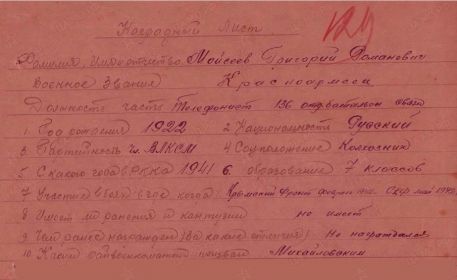 Наградный Лист
Фамилия, имя отчество Моисеев Григорий Романович
Военное Звание Красноармеец
Должность часть Телефонист 136 отд. батальон связи
1. Год рождения 1922 2. Национальность Русский
3. Партийность чл. ВЛКСМ 4. Соцположение Колхозник
5. С какого года в РККА 1941 6. образование 7 классов
7. Участие в боях где когда: Крымский Фронт май
8. Имеет ли ранения и контузии не имеет
9. Чем ранее награжден (за какие отличия) Не награждался
10. Каким райвоенкоматом призван Михайловским